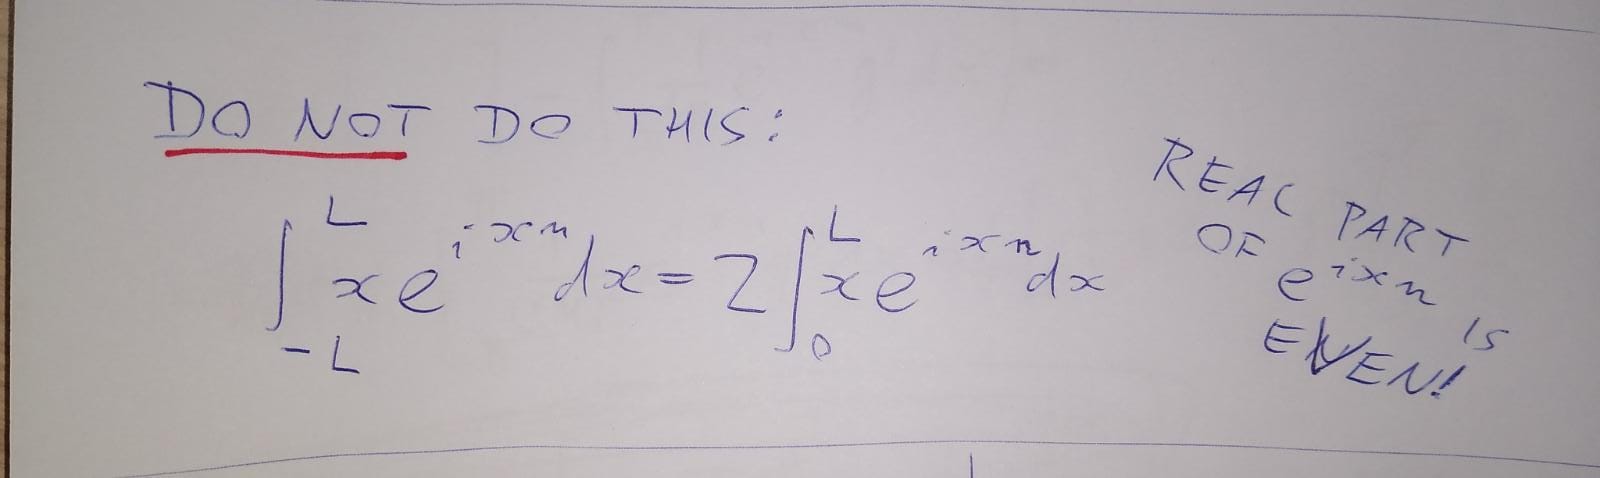 DO NOT DO THIS:
∫_{-L}^{L} x e^{ixn} dx = 2 ∫_{0}^{L} x e^{ixn} dx
REAL PART
OF e^{ixn} IS
EVEN!